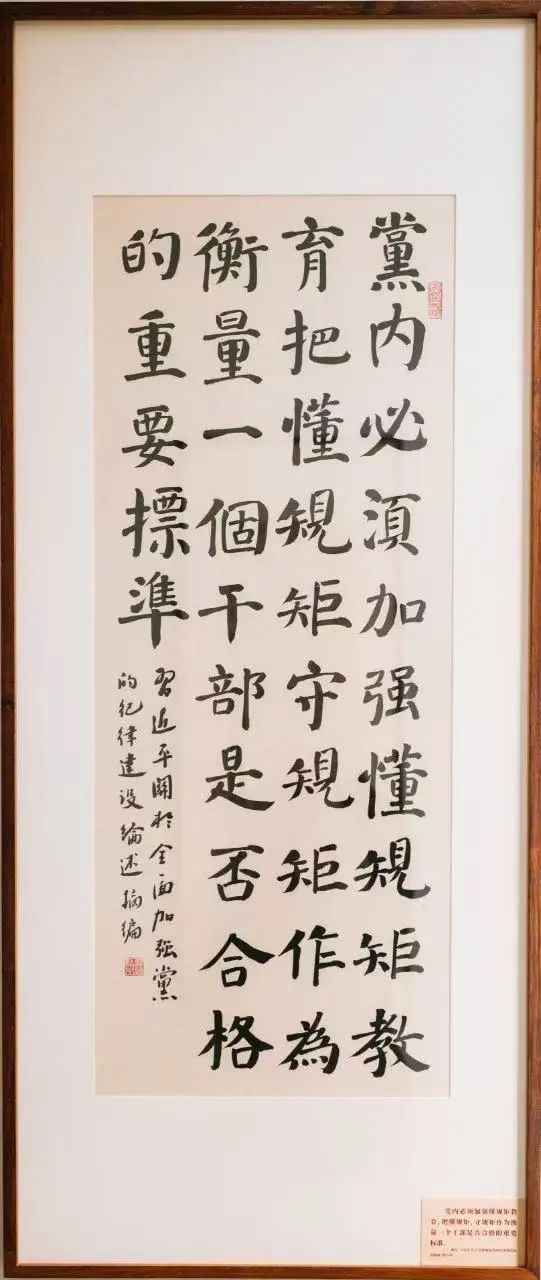 黨內必須加强懂規矩教
育把懂規矩守規矩作為
衡量一個干部是否合格
的重要標準
習近平關於全面加强黨
的紀律建設論述摘編
党内必须加强懂规矩教
育，把懂规矩、守规矩作为衡
量一个干部是否合格的重要
标准。